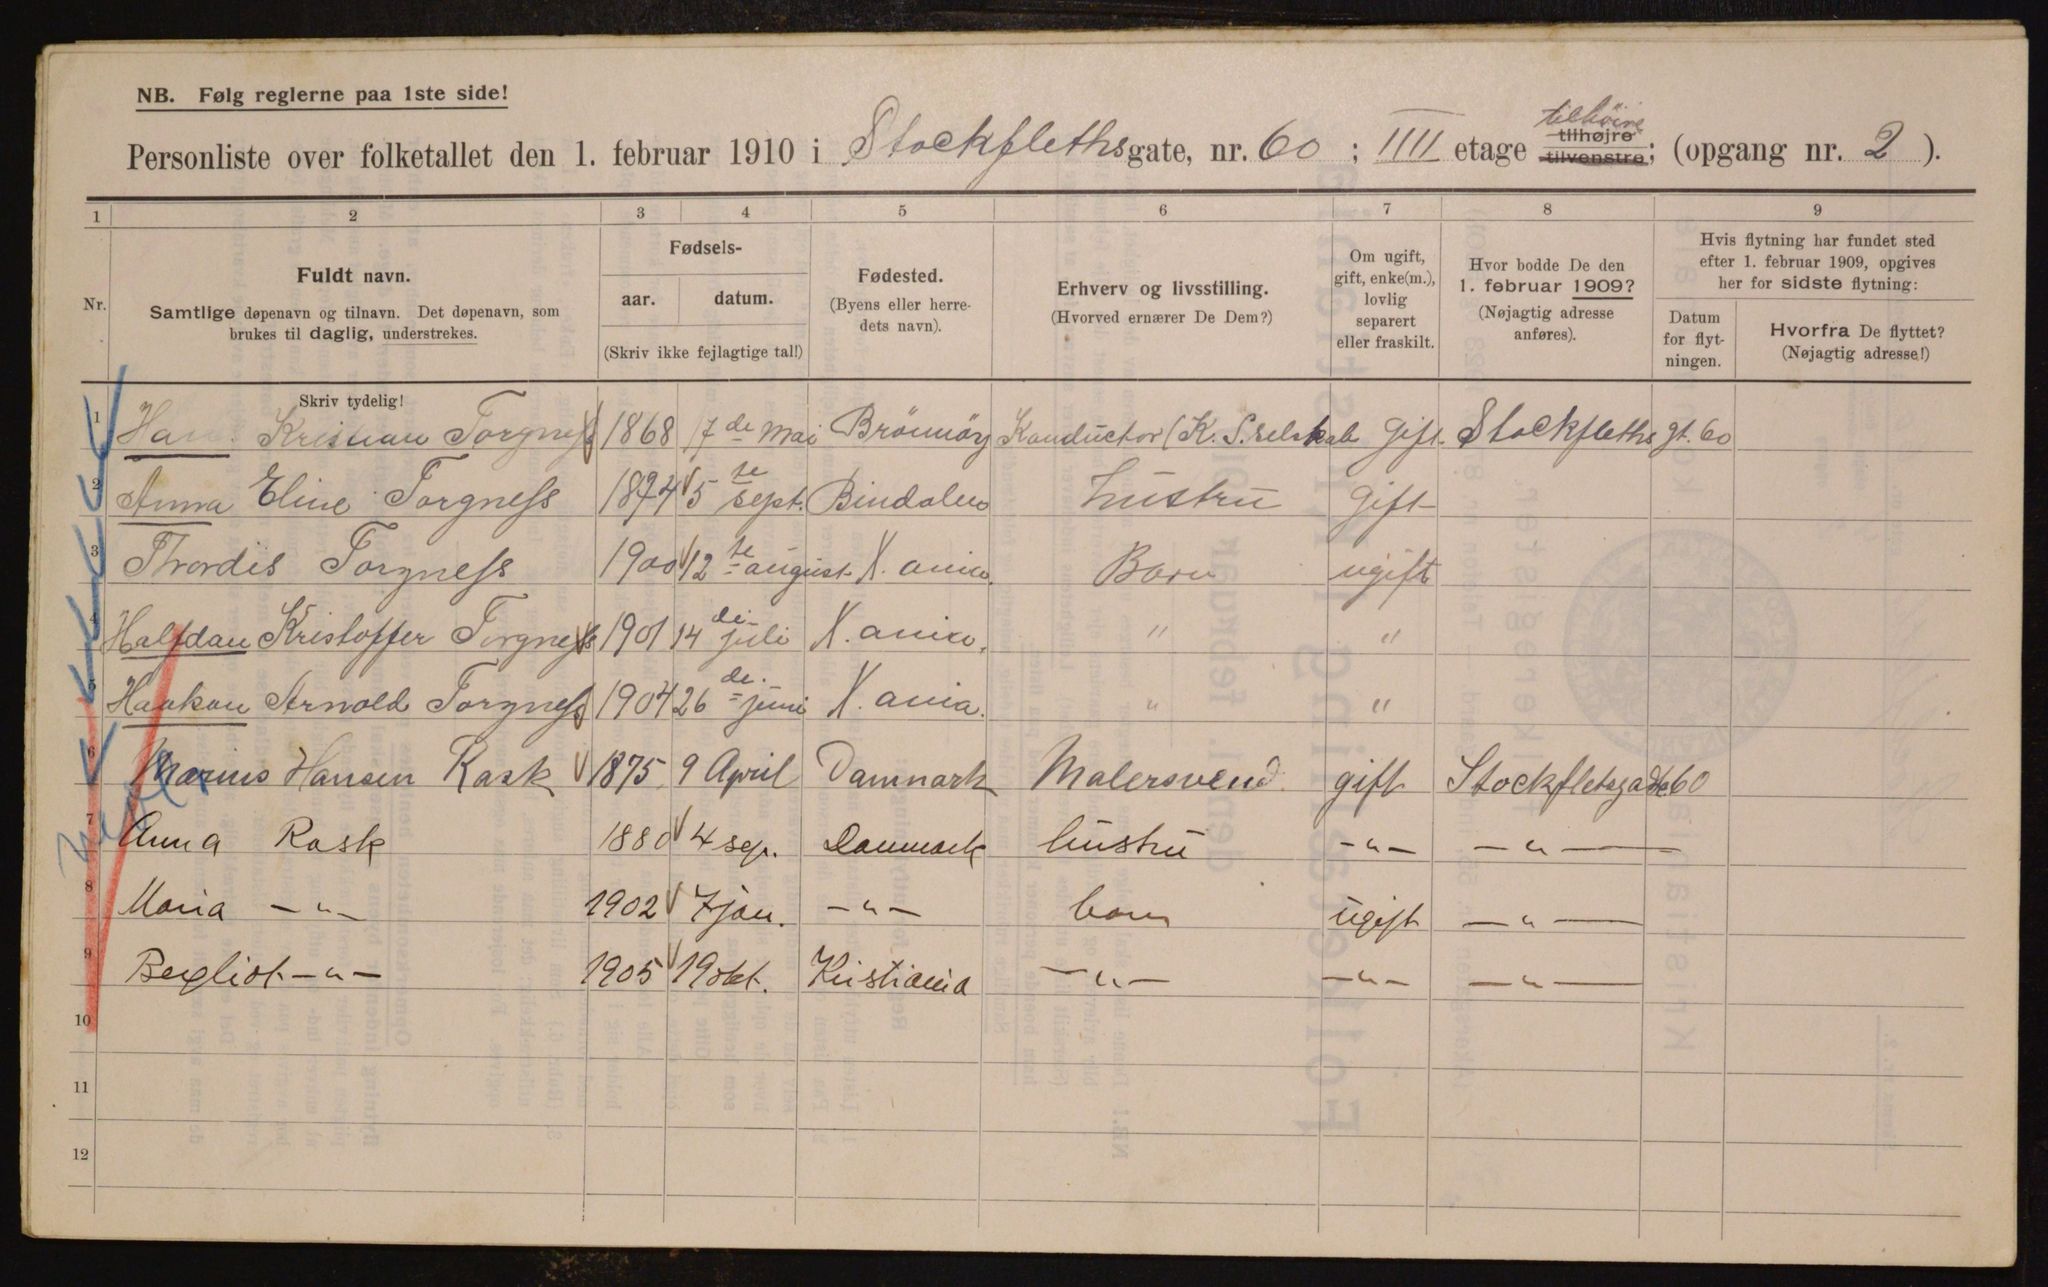 NB. Følg reglerne paa 1ste side!
tilhöire
Personliste over folketallet den 1. februar 1910 i Stockflethsgate, nr. 60 ; IIII etage tilhøjre tilvenstre; (opgang nr. 2 ).
1 2 3 4 5 6 7 8 9
Nr.
Fuldt navn.
Samtlige døpenavn og tilnavn. Det døpenavn, som
brukes til daglig, understrekes.
Skriv tydelig!
Fødsels-
aar. datum.
(Skriv ikke fejlagtige tal!)
Fødested.
(Byens eller herre-
dets navn).
Erhverv og livsstilling.
(Hvorved ernærer De Dem?)
Om ugift,
gift, enke(m.),
lovlig
separert
eller fraskilt.
Hvor bodde De den
1. februar 1909?
(Nøjagtig adresse
anføres).
Hvis flytning har fundet sted
efter 1. februar 1909, opgives
her for sidste flytning:
Datum
for flyt-
ningen.
Hvorfra De flyttet?
(Nøjagtig adresse!)
1 Kristian Torgness 1868 17de Mai Brönnöy Konductor (K. S. selskab Gift Stockfleths gt. 60
2 Anna Eline Torgness 1874 5te Sept. Bindalen hustru Gift
3 Thordis Torgness 1900 12te august X.ania. Barn ugift
4 Halfdan Kristoffer Torgness 1901 14de juli X.ania. " "
5 Haakon Arnold Torgness 1904 26de juni X.ania. " "
6 Marius Hansen Rask 1875 9 April Danmark Malersvend gift Stockfletsgade 60
7 Anna Rask 1880 4 sep. Danmark hustru -"- -"-
8 Maria -"- 1902 7 jan. -"- barn ugift -"-
9 Bergliot -"- 1905 19 okt. Kristiania -"- -"- -"-
10
11
12